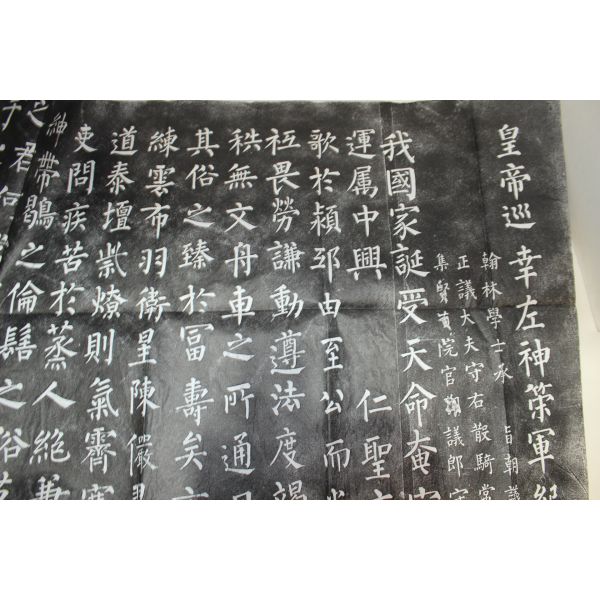 皇帝巡　幸左神策軍紀
翰林學士承　旨朝議
正議大夫守右散騎常
集賢直院官朝議郎守
我國家誕受天命奄
運属中興　仁聖
歌於潁邳由至公而光
祇畏勞謙動遵法度竭
秩無文舟車之所通日
其俗之臻於冨壽矣
練雲布羽衛星陳儼
道泰壇紫燎則氣霽
吏問疾苦於蒸人絶
紳帶鶡之倫髽之俗